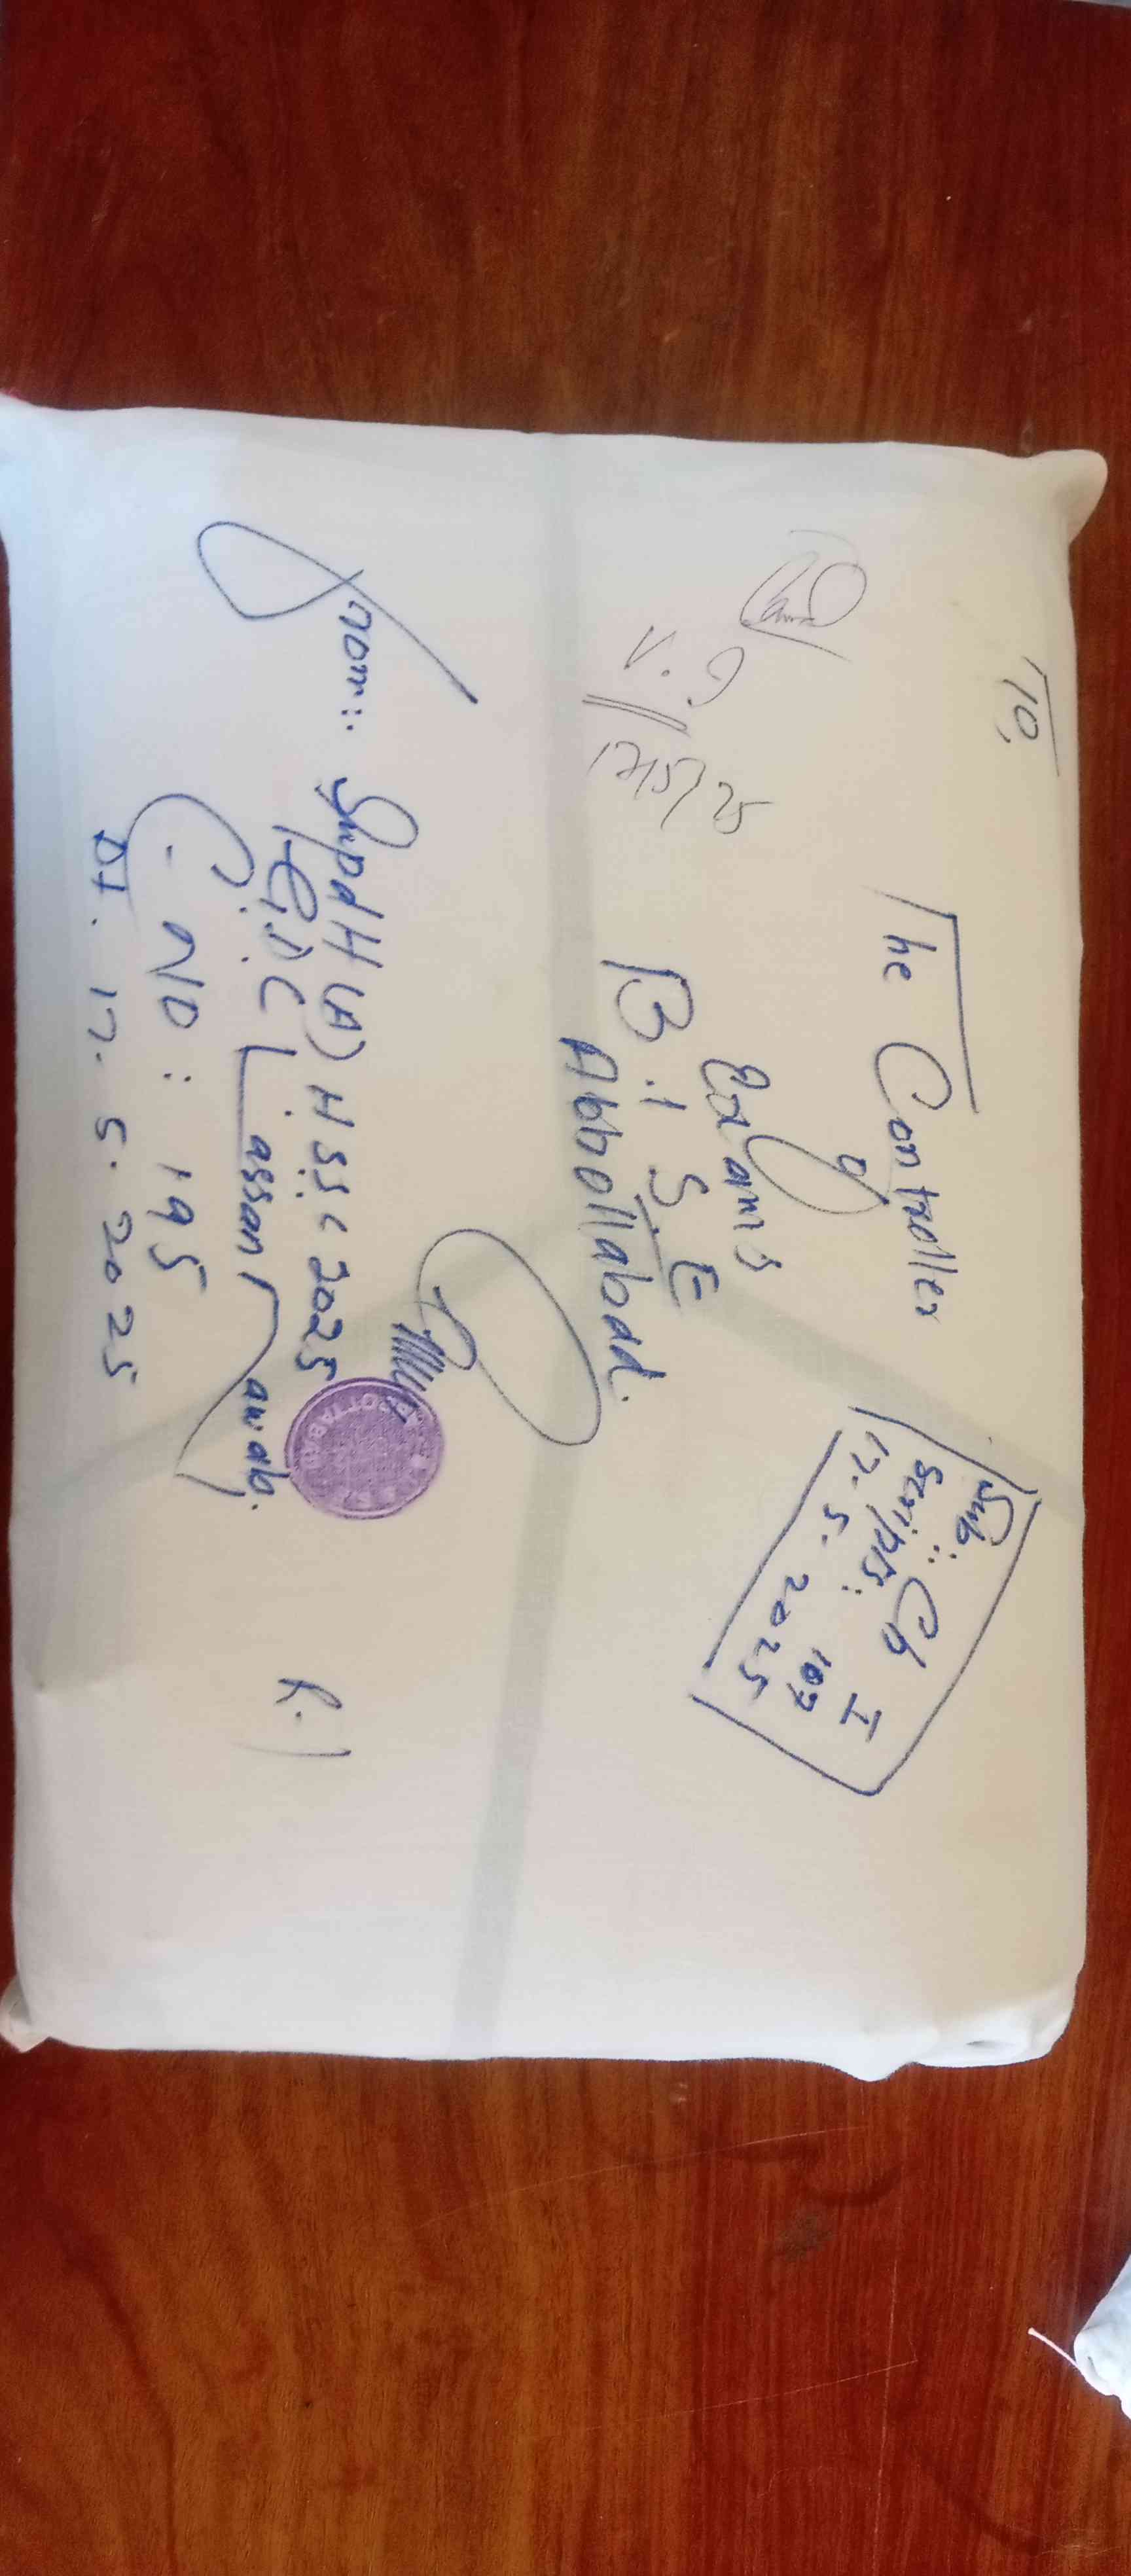 To,
The Controller
of
Exams
B.I.S.E
Abbottabad.
Sub:: Ch I
Scripts: 107
17.5.2025
C.N.
17/5/25
From:: Supdtt (A) HSSC 2025
G.D.C Hassan Nawab.
C.NO: 195
DT. 17.5.2025
ABBOTTABAD